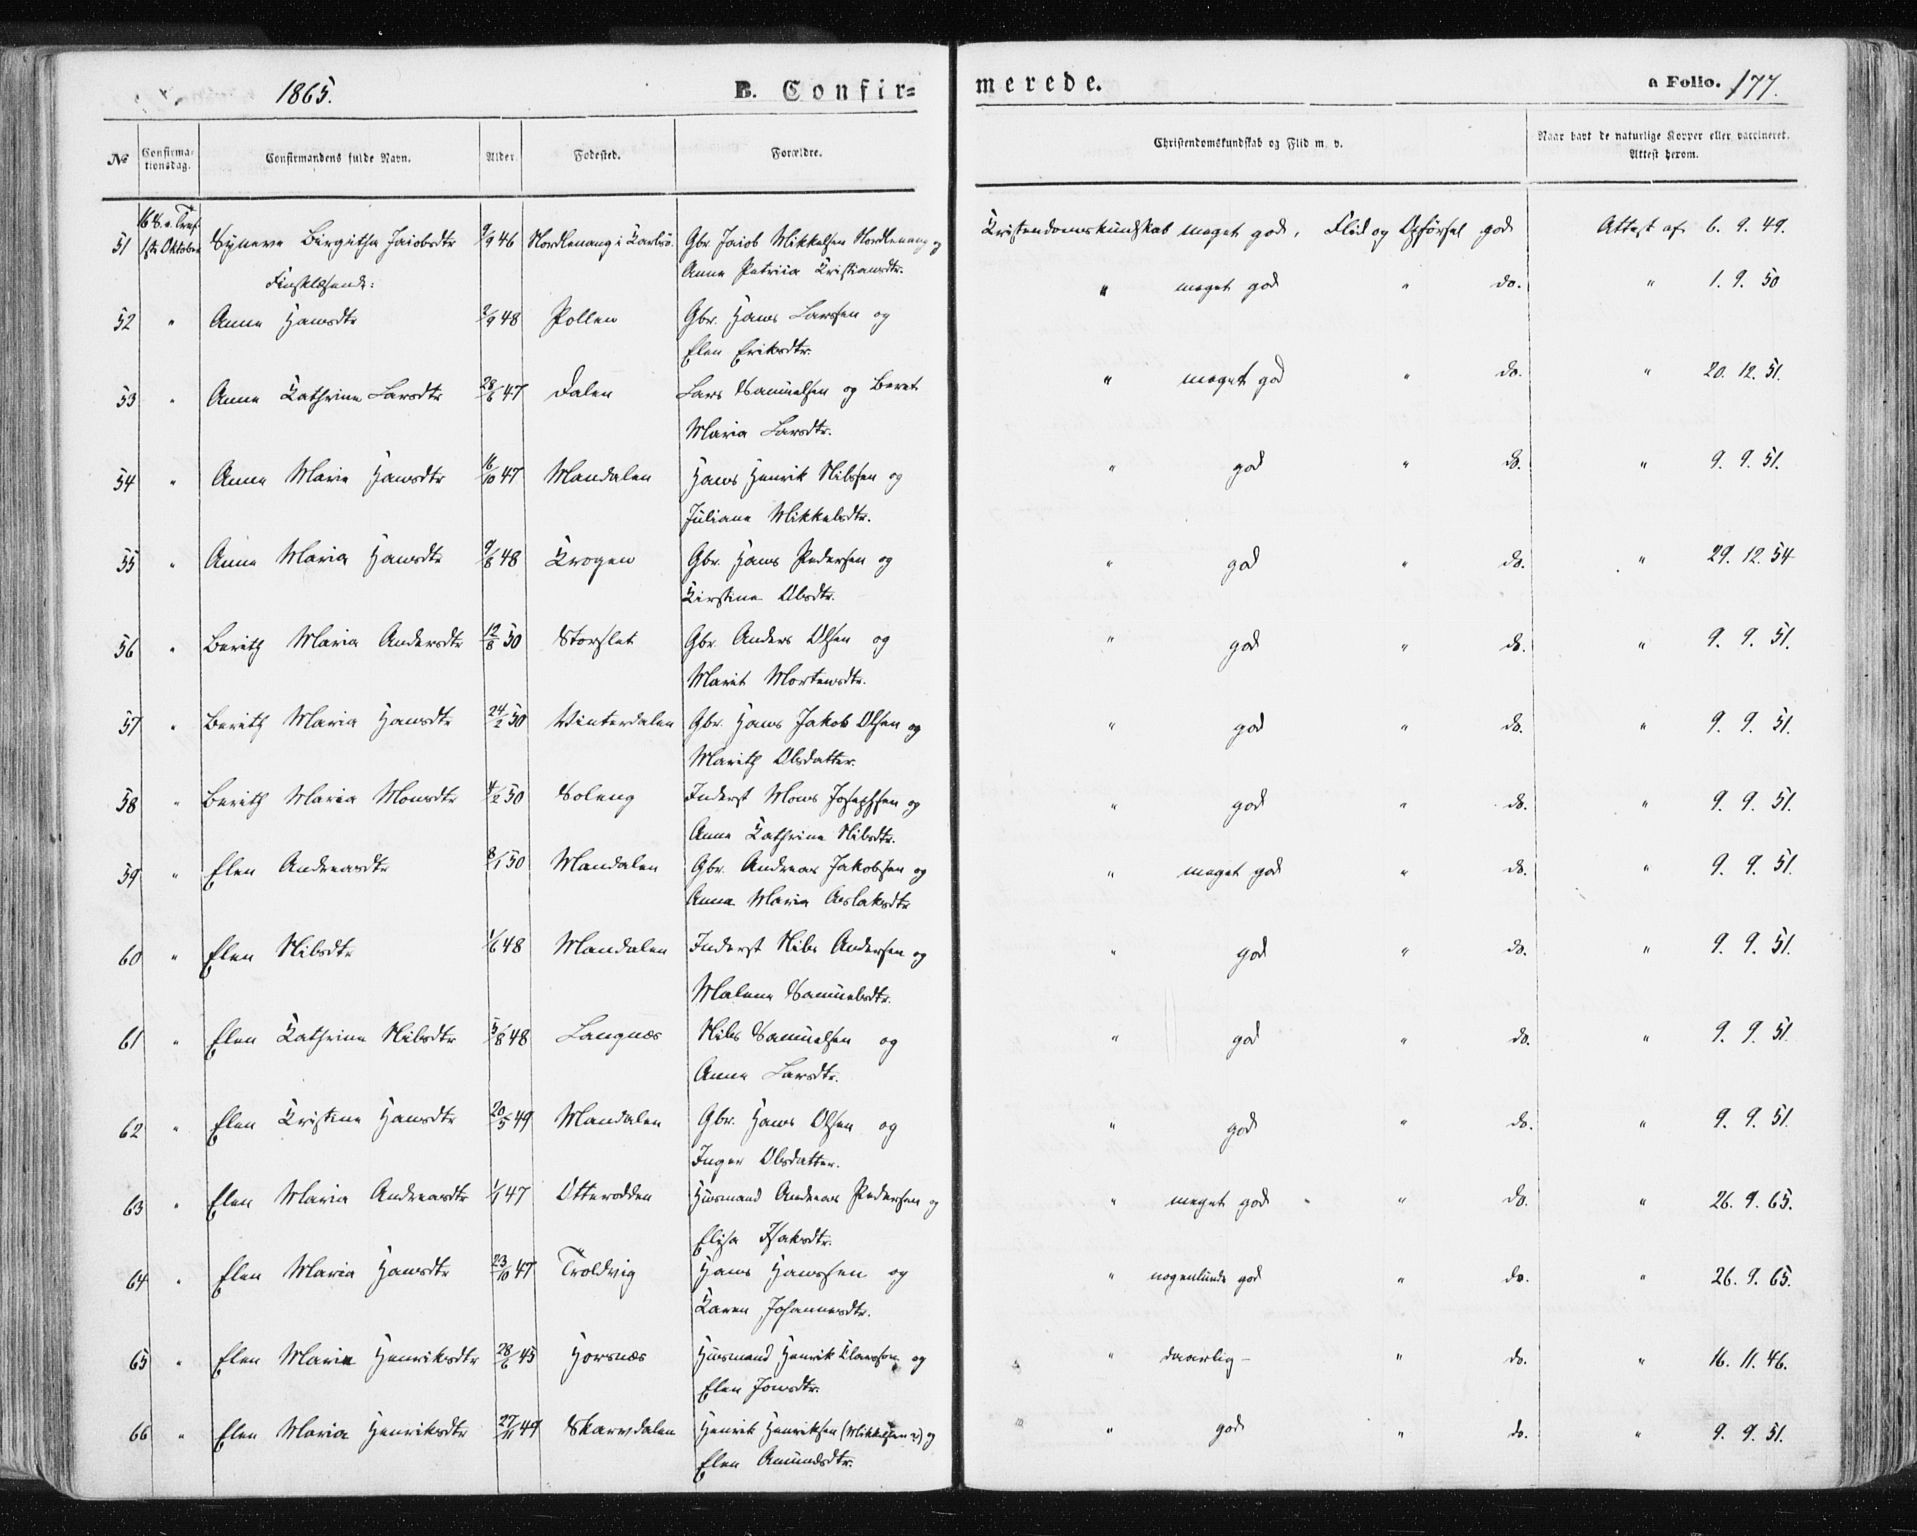 1865.
B. Confir=
merede.
a Folio. 177.
No
Confirma-
tionsdag.
Confirmandens fulde Navn.
Alder.
Fødested.
Forældre.
Christendomskundskab og Flid m. v.
Naar havt de naturlige Kopper eller vaccineret.
Attest herom.
51 16 S. e. Tref. 1ste Oktober Synerva Birgitha Jaiobsdtr 9/9 46 Nordlenang i Karlsö. Gbr. Jaiob Mikkelsen Nordlenang og Kristendomskundskab meget god. Flid og Opførsel god Attest af 6. 9. 49.
Anne Patriia Kristiansdtr.
Finsklæsende:
52 " Anne Hansdtr 2/9 48 Pollen Gbr. Hans Larsen og " meget god " do. " 1. 9. 50
Elen Eriksdtr.
53 " Anne Kathrine Larsdtr 28/6 47 Dalen Lars Samuelsen og Beret " meget god " do. " 20. 12. 51.
Maria Larsdtr.
54 " Anne Marie Hansdtr 16/10 47 Mandalen Hans Henrik Nilssen og " god " do. " 9. 9. 51.
Juliane Mikkelsdtr.
55 " Anne Maria Hansdtr 9/8 48 Krogen Gbr. Hans Pedersen og " god " do. " 29. 12. 54
Kirstine Olsdtr.
56 " Berith Maria Andersdtr 12/8 50 Storslet Gbr. Anders Olsen og " god " do. " 9. 9. 51.
Marit Mortensdtr.
57 " Berith Maria Hansdtr 24/2 50 Vinterdalen Gbr. Hans Jakob Olsen og " god " do. " 9. 9. 51.
Marith Olsdatter.
58 " Berith Maria Monsdtr 4/2 50 Soleng Inderst Mons Josephsen og " god " do. " 9. 9. 51.
Anne Kathrine Nilsdtr.
59 " Elen Andreasdtr 8/1 50 Mandalen Gbr. Andreas Jakobsen og " meget god " do. " 9. 9. 51.
Anne Maria Aslaksdtr
60 " Elen Nilsdtr 1/6 48 Mandalen Inderst Nils Andersen og " god " do. " 9. 9. 51.
Malene Samuelsdtr.
61 " Elen Kathrine Nilsdtr 5/8 48 Langnæs Nils Samuelsen og " god " do. " 9. 9. 51
Anne Larsdtr.
62 " Elen Kristine Hansdtr 20/5 49 Mandalen Gbr. Hans Olsen og " god " do. " 9. 9. 51.
Inger Olsdatter.
63 " Elen Maria Andreasdtr 1/1 47 Otterodden Husmand Andreas Pedersen og " meget god " do. " 26. 9. 65.
Elisa Isaksdtr.
64 " Elen Maria Hansdtr 23/10 47 Troldvig Hans Hanssen og " nogenlunde god " do. " 26. 9. 65.
Karen Johannesdtr.
65 " Elen Marie Henriksdtr 28/6 45 Horsnæs Husmand Henrik Clausson og " daarlig - " do. " 16. 11. 46.
Elen Jonsdtr.
66 " Elen Maria Henriksdtr 27/11 49 Skarvdalen Henrik Henriksen (Mikkelsen?) og " god " do. " 9. 9. 51.
Elen Amundsdtr.